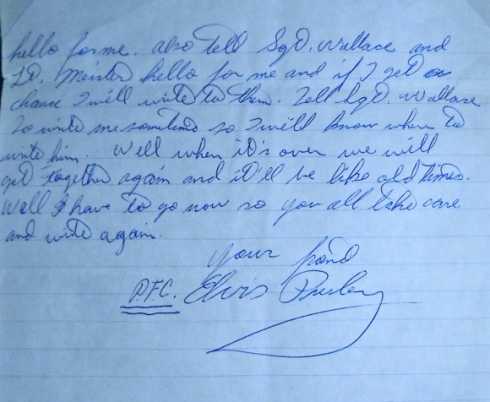 hello for me. also tell Sgt. Wallace and
Lt. Meister hello for me and if I get a
chance I will write to them. Tell Sgt. Wallace
to write me sometime so I will know where to
write him. Well when it's over we will
get together again and it'll be like old times.
Well I have to go now so you all take care
and write again.
your friend
PFC. Elvis